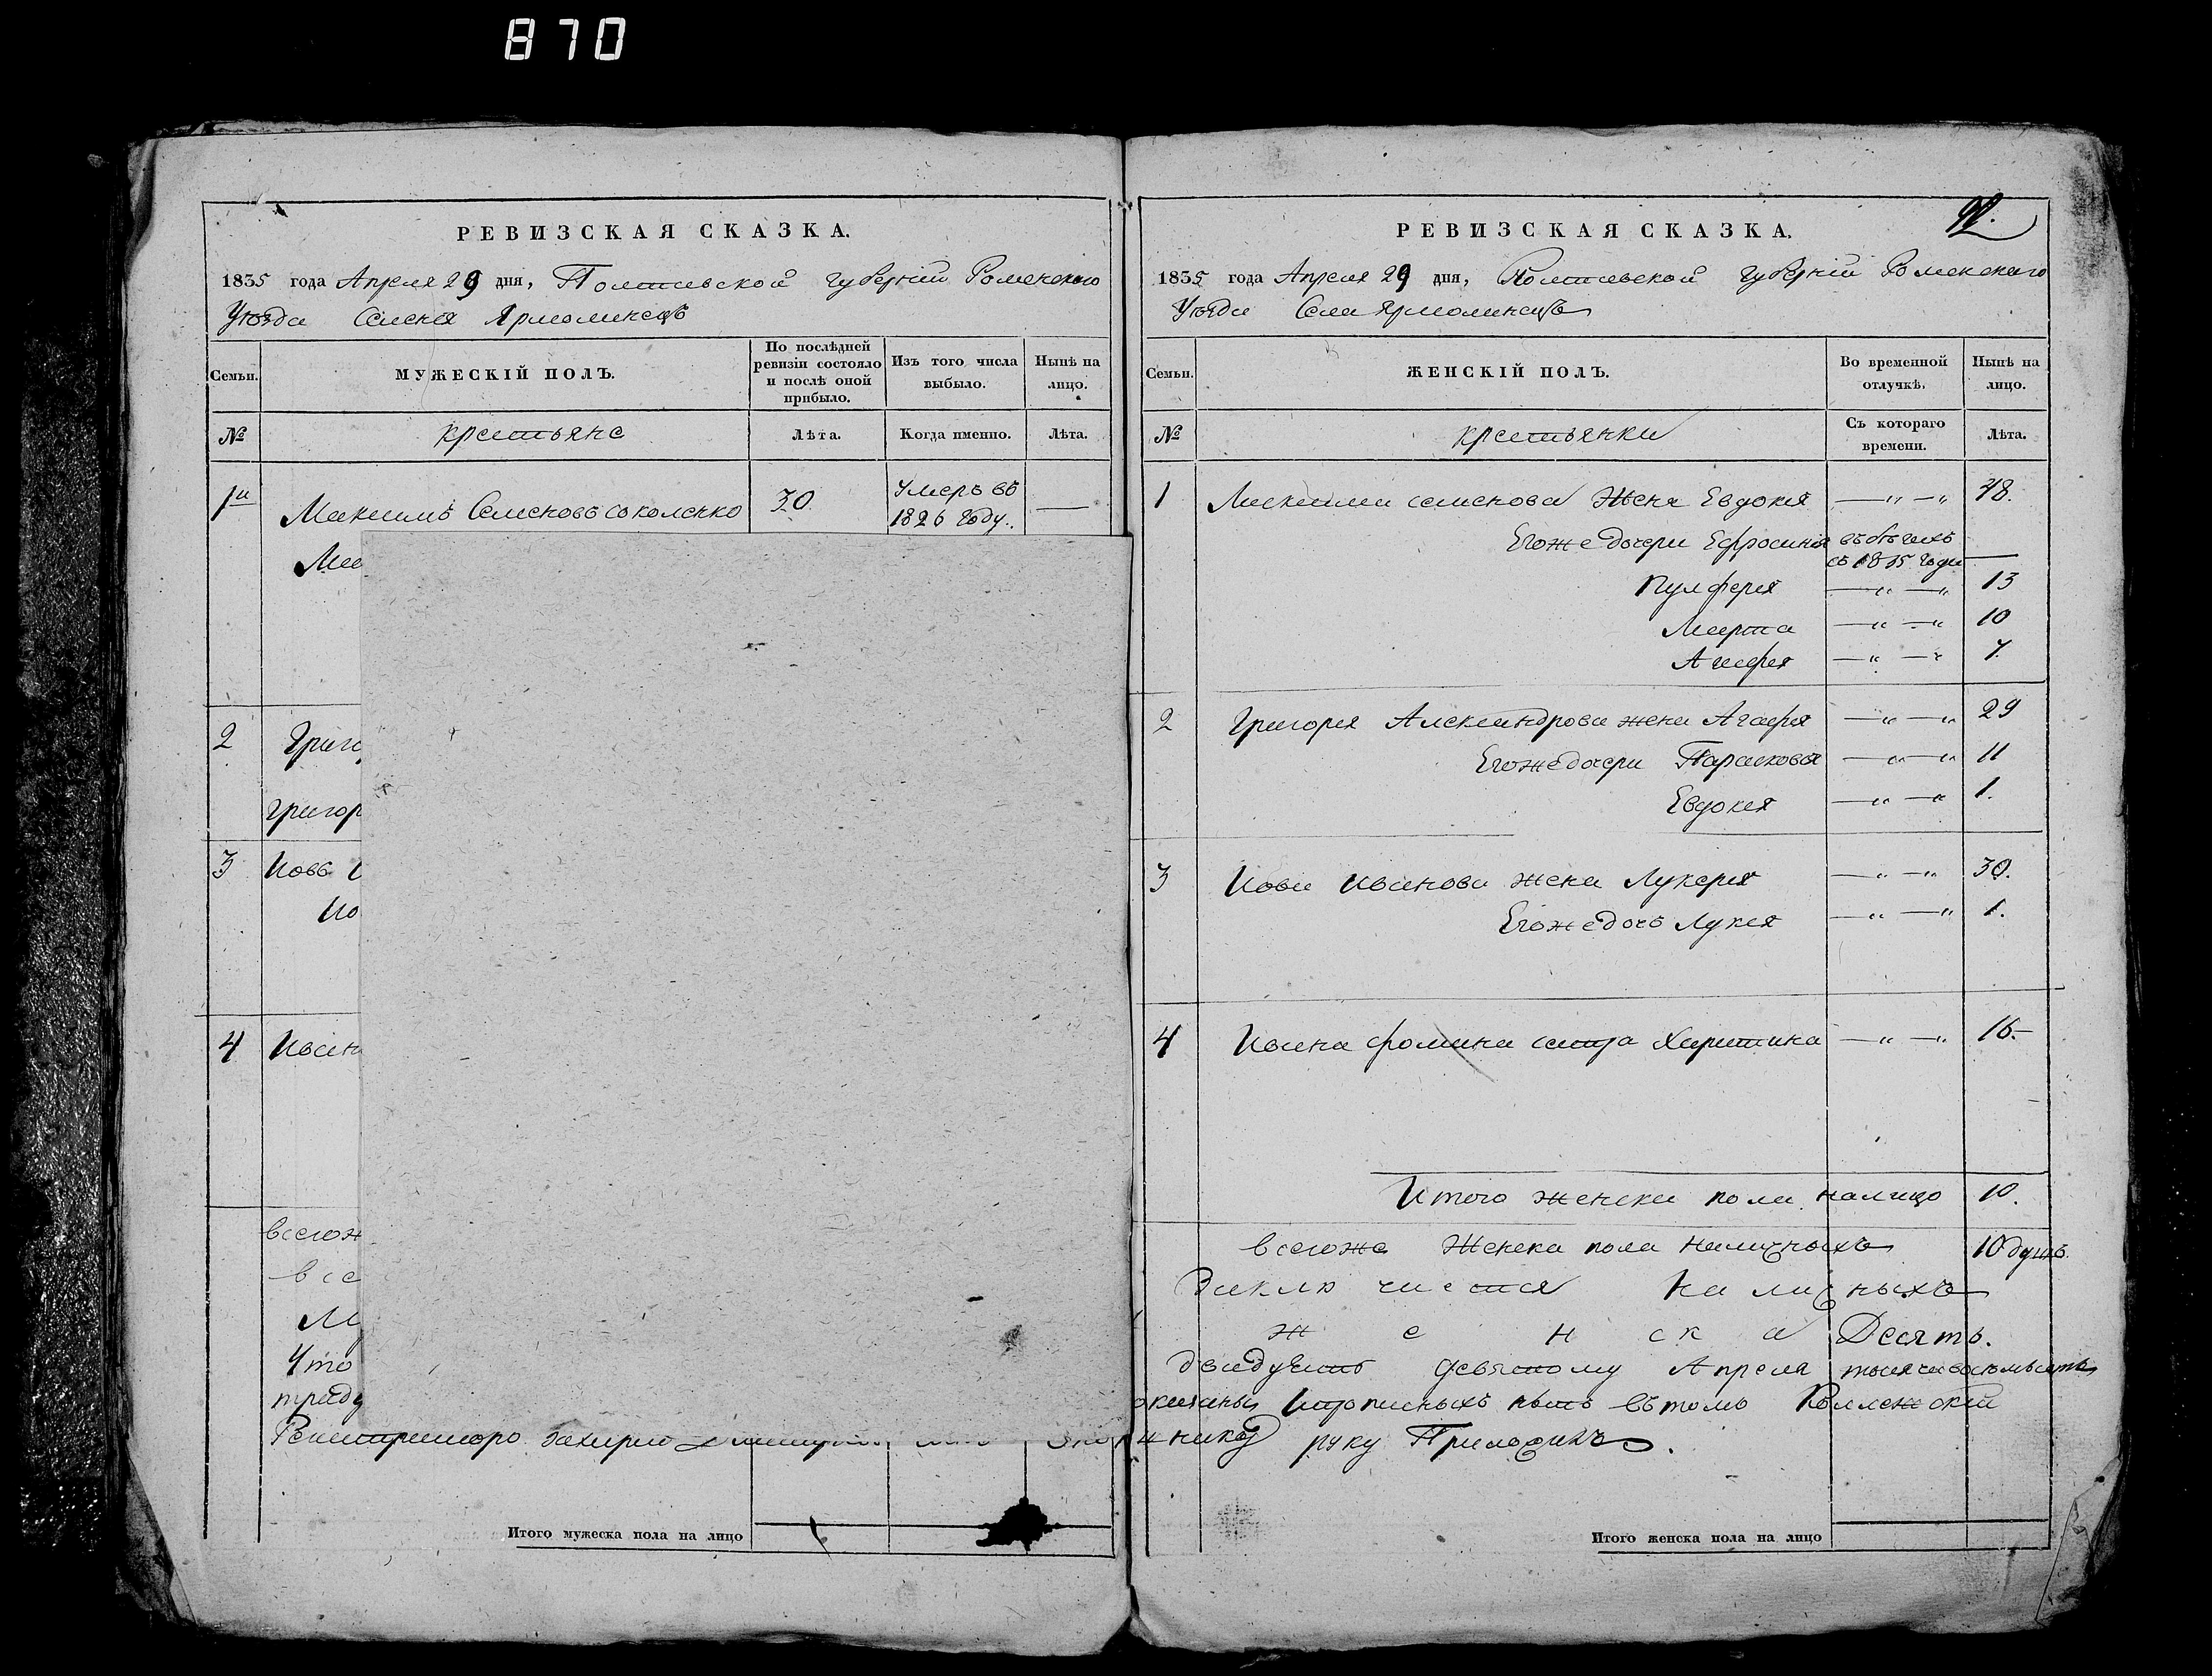 870
РЕВИЗСКАЯ СКАЗКА.
1835 года Апреля 29 дня, Полтавской губерніи Роменского
Уѣзда Селенія Ярмолинецъ
Семьи.
МУЖЕСКІЙ ПОЛЪ.
По послѣдней ревизіи состояло и послѣ оной прибыло.
Изъ того числа выбыло.
Нынѣ на лицо.
№
крестьяне
Лѣта.
Когда именно.
Лѣта.
1й
Максимъ Семеновъ Соколенко
30
умеръ въ
1826 году.
Ма
2
Григо
Григор
3
Иовъ
Ио
4
Иван
всегож
все
Что
Итого мужеска пола на лицо
РЕВИЗСКАЯ СКАЗКА.
92.
1835 года Апреля 29 дня, Полтавской губерніи Роменского
Уѣзда Села Ярмолинецъ
Семьи.
ЖЕНСКІЙ ПОЛЪ.
Во временной отлучкѣ.
Нынѣ на лицо.
№
крестьянки
Съ котораго времени.
Лѣта.
1 Максима Семенова жена Евдокія —„—„ 48.
Егоже дочери Ефросинія въ бѣгахъ
съ 1835 года —
Пулферія —„—„ 13
Марта —„—„ 10
Агафія —„—„ 7.
2 Григорія Александрова жена Агафія —„—„ 29
Егоже дочери Парасковія —„—„ 11
Евдокія —„—„ 1.
3 Иова Иванова жена Лукерія —„—„ 30.
Егоже дочь Лукія —„—„ 1.
4 Ивана Фомина сестра Харитина —„—„ 16.
Итого женска пола налицо 10.
всегоже Женска пола наличныхъ 10 душъ.
Заключается наличныхъ
женска Десять.
двадцать девятому Апреля тысяча восемьсотъ
нѣтъ въ томъ Роменскій
руку Приложилъ.
Итого женска пола на лицо